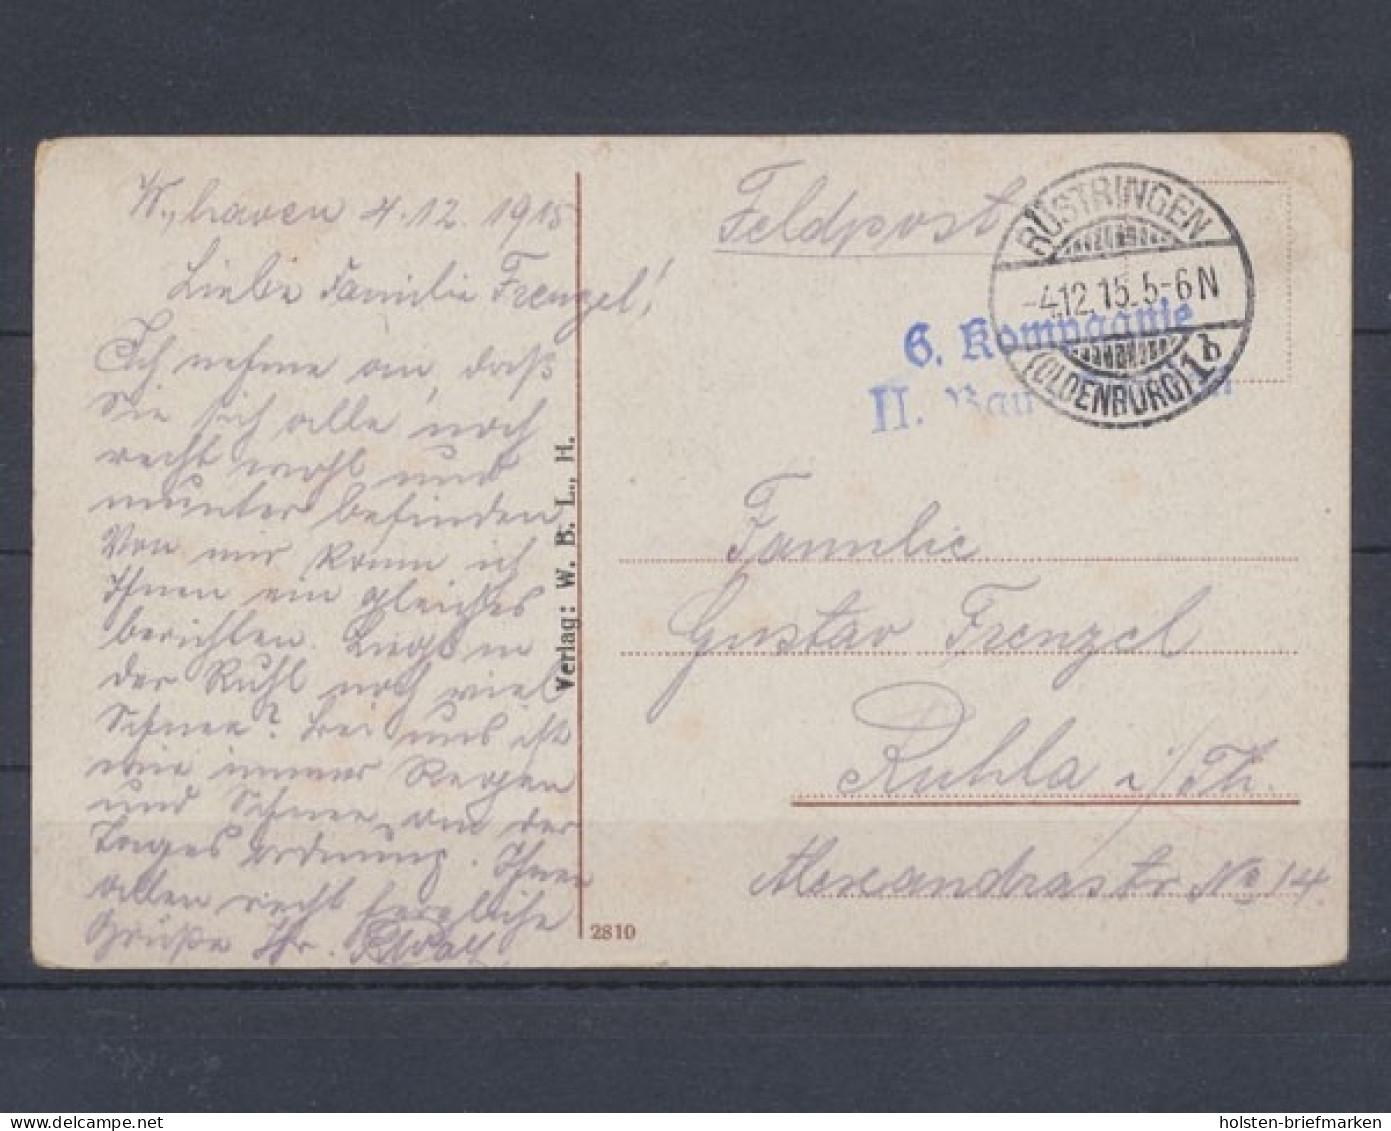 W., haven 4.12.1915
Liebe Familie Frenzel!
Ich nehme an, daß
Sie sich alle, noch
recht wohl und
munter befinden
Von mir kann ich
Ihnen ein gleiches
berichten. Liegt in
der Ruhl noch viel
Schnee? Bei uns ist
wie immer Regen
und Schnee an der
Tages Ordnung. Ihnen
allen recht herzliche
Grüße Ihr
Verlag: W. B. L., H.
2810
Feldpost
RÜSTRINGEN
-4.12.15.5-6N
(OLDENBURG) 1b
6. Kompagnie
II.
Familie
Gustav Frenzel
Ruhla i/Th.
Alexandrastr No 14.
holsten-briefmarken